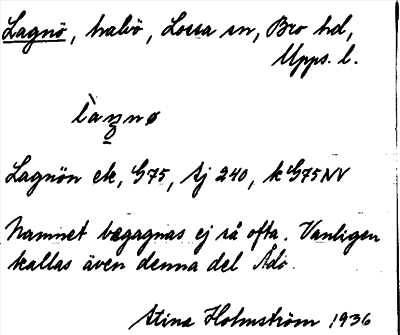 Lagnö, halvö, Lossa sn, Bro hd,
Upps. l.
Lagnön ek, G75, Aj 240, k G75NV
Namnet begagnas ej så ofta. Vanligen
kallas även denna del Ådö.
Stina Holmström 1936